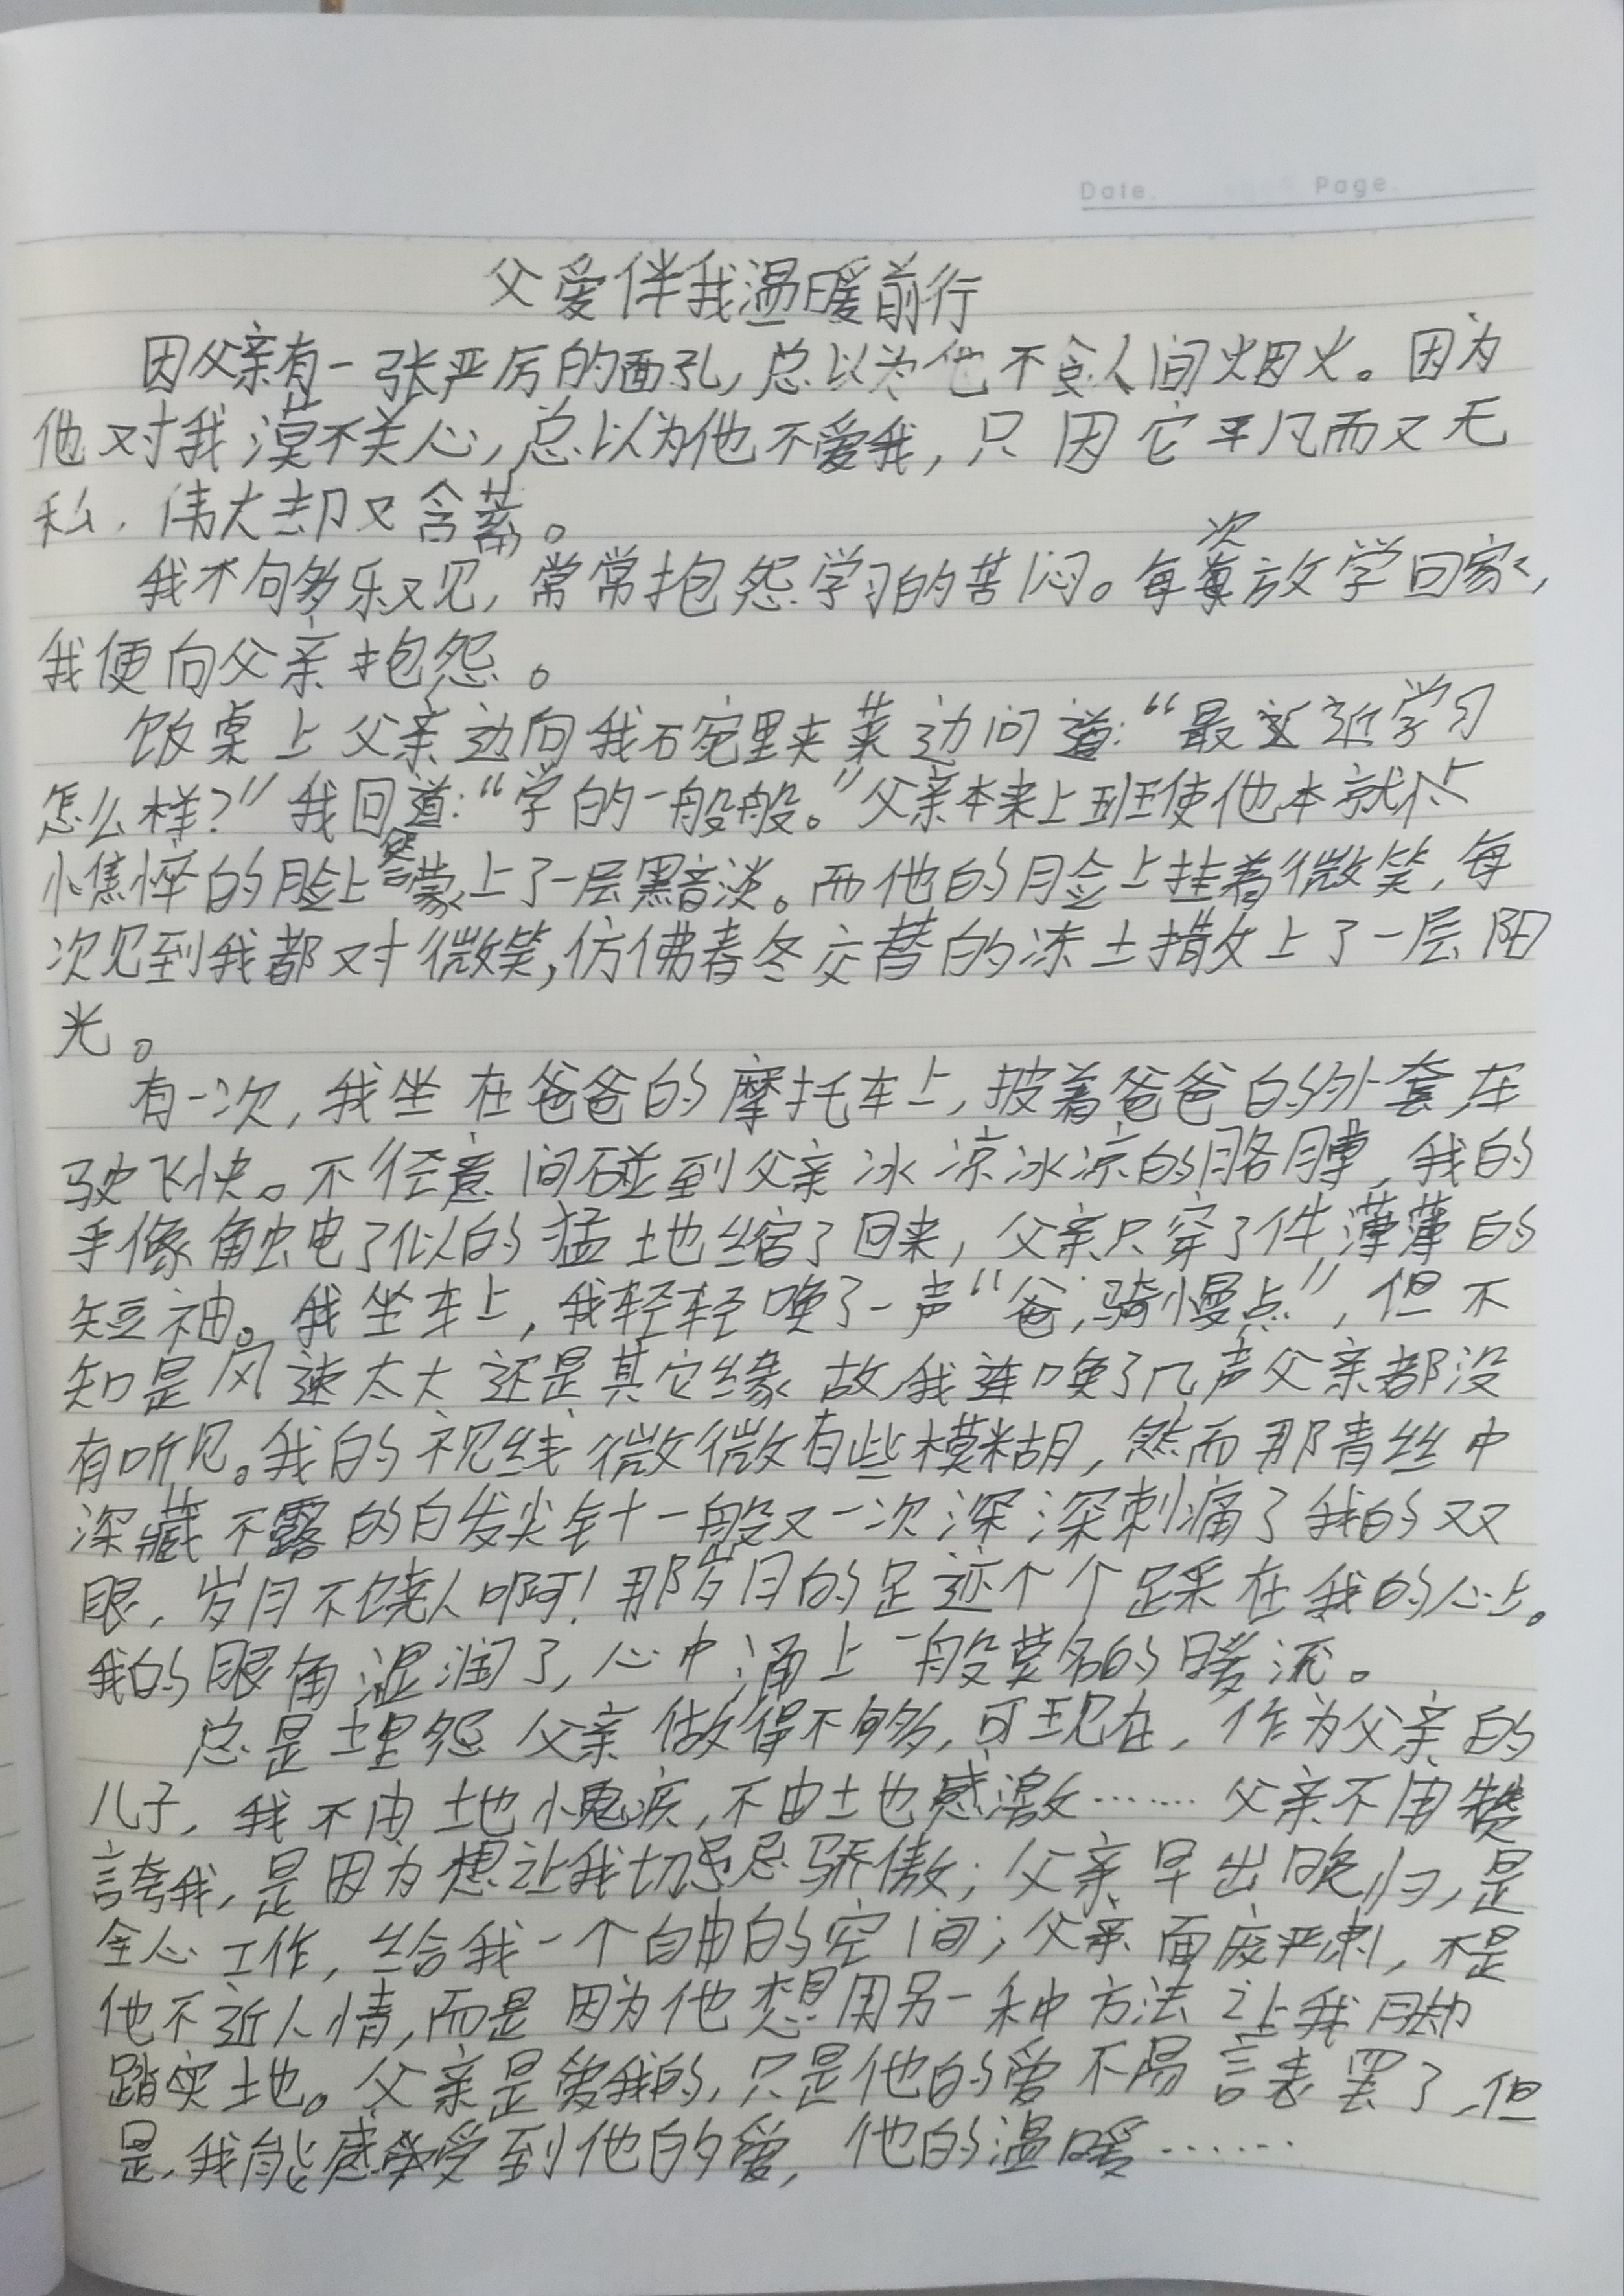 Date. Page.
父爱伴我温暖前行
因父亲有一张严厉的面孔，总以为他不食人间烟火。因为
他对我漠不关心，总以为他不爱我，只因它平凡而又无
私，伟大却又含蓄。
我不够乐观，常常抱怨学习的苦闷。每次放学回家，
我便向父亲抱怨。
饭桌上父亲边向我碗里夹菜边问道：“最近学习
怎么样？”我回道：“学的一般般。”父亲本来上班使他本就
憔悴的脸上蒙上了一层黯淡。而他的脸上挂着微笑，每
次见到我都对微笑，仿佛春冬交替的冻土撒上了一层阳
光。
有一次，我坐在爸爸的摩托车上，披着爸爸的外套，车
驶飞快。不径意间碰到父亲冰凉冰凉的胳膊，我的
手像触电了似的猛地缩了回来，父亲只穿了件薄薄的
短袖。我坐车上，我轻轻唤了一声“爸，骑慢点”，但不
知是风速太大还是其它缘故，我连唤了几声父亲都没
有听见。我的视线微微有些模糊，然而那青丝中
深藏不露的白发尖针一般又一次深深刺痛了我的双
眼，岁月不饶人啊！那岁月的足迹个个踩在我的心上。
我的眼角湿润了，心中涌上一般莫名的暖流。
总是埋怨父亲做得不够，可现在，作为父亲的
儿子，我不由地愧疚，不由地感激……父亲不用赞
誇我，是因为想让我切忌骄傲；父亲早出晚归，是
全心工作，给我一个自由的空间；父亲面庞严肃，不是
他不近人情，而是因为他想用另一种方法让我脚
踏实地。父亲是爱我的，只是他的爱不易言表罢了，但
是，我能感受到他的爱，他的温暖……